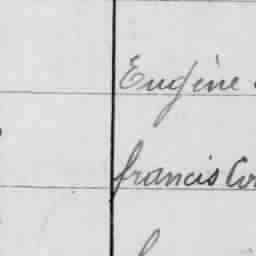 Eugène
francis